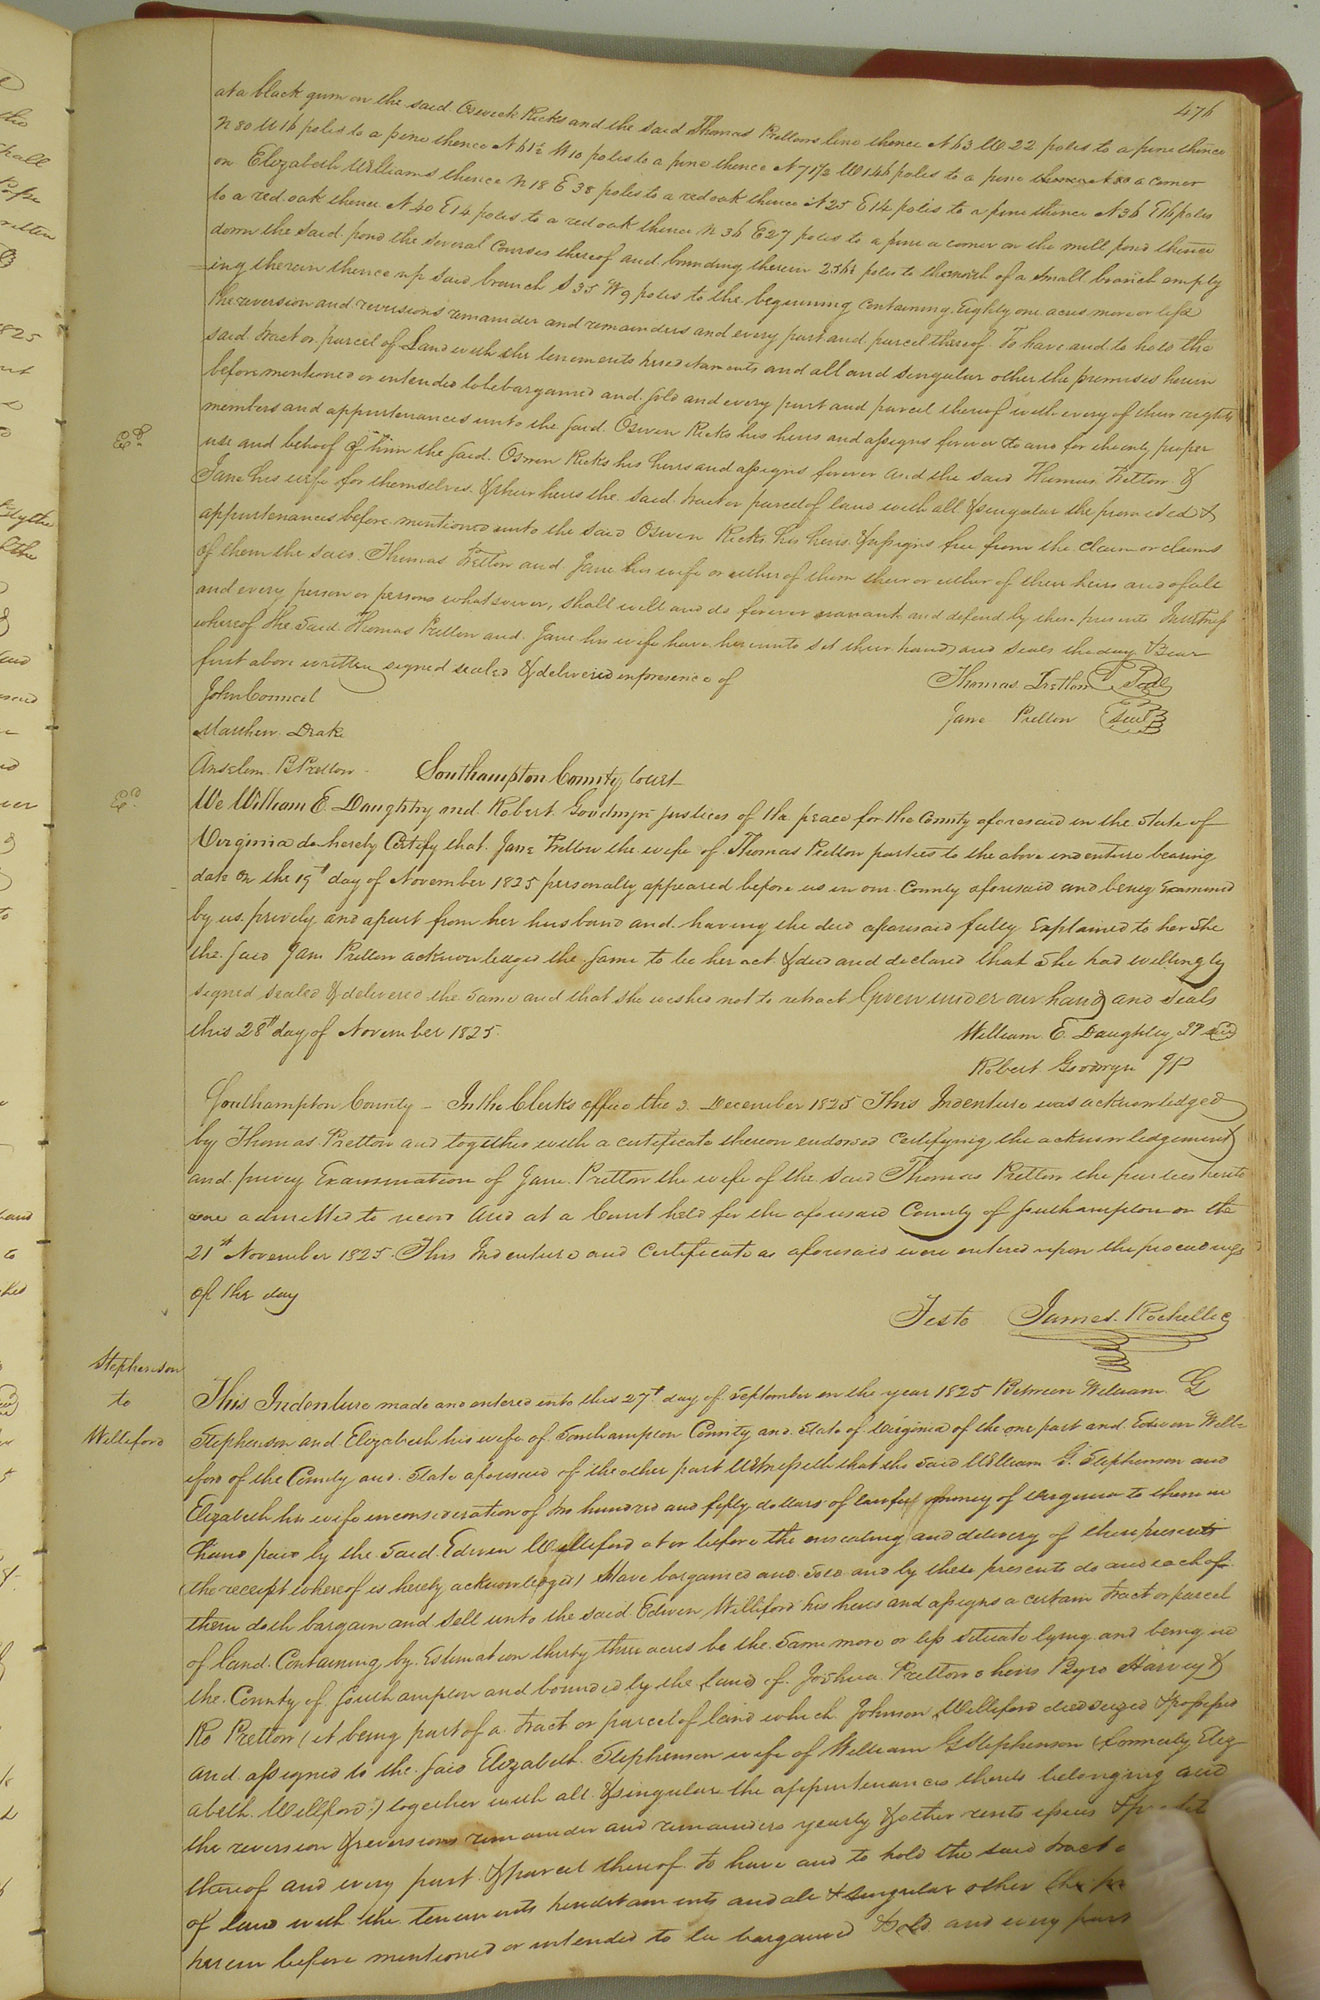 476
at a black gum on the said Oswin Ricks and the said Thomas Prettons line thence N 63 W 22 poles to a pine thence
N 80 W 16 poles to a pine thence N 61½ W 10 poles to a pine thence N 71½ W 146 poles to a pine a corner
on Elizabeth Williams thence N 18 E 38 poles to a red oak thence N 25 E 14 poles to a pine thence N 36 E 16 poles
to a red oak thence N 40 E 14 poles to a red oak thence N 36 E 27 poles to a pine a corner on the mill pond thence
down the said pond the several Courses thereof and bounding therein poles to the mouth of a small branch empty
ing therein thence up said branch S 35 W 9 poles to the beginning Containing Eighty one acres more or less
the reversion and reversions remainder and remainders and every part and parcel thereof To have and to hold the
said tract or parcel of Land with the tenements hereditaments and all and singular other the premises herein
before mentioned or intended to be bargained and sold and every part and parcel thereof with every of their rights
members and appurtenances unto the said Oswin Ricks his heirs and assigns forever to and for the only proper
Ed
use and behoof of him the said Oswin Ricks his heirs and assigns forever and the said Thomas Pretton &
Jane his wife for themselves & their heirs the said tract or parcel of land with all & singular the premises &
appurtenances before mentioned unto the said Oswin Ricks his heirs & assigns free from the claim or claims
of them the said Thomas Pretton and Jane his wife or either of them their or either of their heirs and of all
and every person or persons whatsoever, shall will and do forever warrant and defend by these presents In witness
whereof the said Thomas Pretton and Jane his wife have hereunto set their hands and seals the day & year
first above written signed sealed & delivered in presence of
Thomas Pretton Seal
John Councel
Jane Pretton Seal
Matthew Drake
Anselem B Pretton
Southampton County Court
Ed
We William E. Daughtry and Robert Goodwyn justices of the peace for the County aforesaid in the State of
Virginia do hereby Certify that Jane Pretton the wife of Thomas Pretton parties to the above indenture bearing
date on the 19th day of November 1825 personally appeared before us in our County aforesaid and being Examined
by us privily and apart from her husband and having the deed aforesaid fully Explained to her She
the said Jane Pretton acknowledged the same to be her act & deed and declared that She had willingly
signed sealed & delivered the same and that she wished not to retract Given under our hand and seals
this 28th day of November 1825
William E. Daughtry JP Seal
Robert Goodwyn JP
Southampton County – In the Clerks office the 3 December 1825 This Indenture was acknowledged
by Thomas Pretton and together with a certificate thereon endorsed Certifying the acknowledgement
and privy Examination of Jane Pretton the wife of the said Thomas Pretton the parties hereto
were admitted to record And at a Court held for the aforesaid County of Southampton on the
21st November 1825 This Indenture and Certificate as aforesaid were entered upon the proceedings
of the day
Teste James Rochelle C
Stephenson
to
Williford
This Indenture made and entered into this 27th day of September in the year 1825 Between William G
Stephenson and Elizabeth his wife of Southampton County and State of Virginia of the one part and Edwin Will=
iford of the County and State aforesaid of the other part Witnesseth that the said William G. Stephenson and
Elizabeth his wife in consideration of hundred and fifty dollars of lawful money of Virginia to them in
hand paid by the said Edwin Williford at or before the ensealing and delivery of these presents
(the receipt whereof is hereby acknowledged) Have bargained and Sold and by these presents do and each of
them doth bargain and sell unto the said Edwin Williford his heirs and assigns a certain tract or parcel
of land Containing by Estimation thirty three acres be the same more or less situate lying and being in
the County of Southampton and bounded by the land of Joshua Prettons heirs Byrd Harvey &
Ro Pretton (it being part of a tract or parcel of land which Johnson Williford died seized & possessed
and assigned to the said Elizabeth Stephenson wife of William G Stephenson (formerly Eliz=
abeth Williford.) together with all & singular the appurtenances thereto belonging and
the reversion & reversions remainder and remainders yearly & other rents issues
thereof and every part & parcel thereof To have and to hold the said tract
of land with the tenements hereditaments and all & singular other the
herein before mentioned or intended to be bargained & Sold and every part